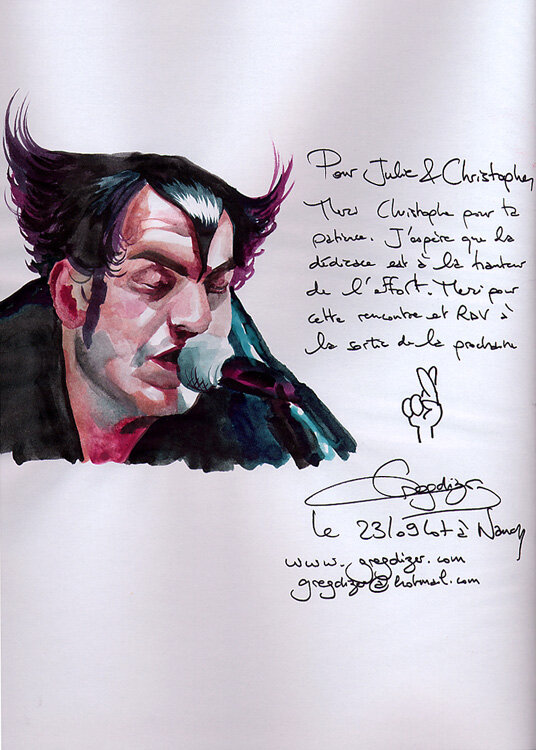 Pour Julie & Christopher,
Merci Christophe pour ta
patience. J'espère que la
dédicace est à la hauteur
de l'effort. Merci pour
cette rencontre et RDV à
la sortie de la prochaine
Gregdizer
le 23/09/07 à Nancy
www.gregdizer.com
gregdizer@hotmail.com